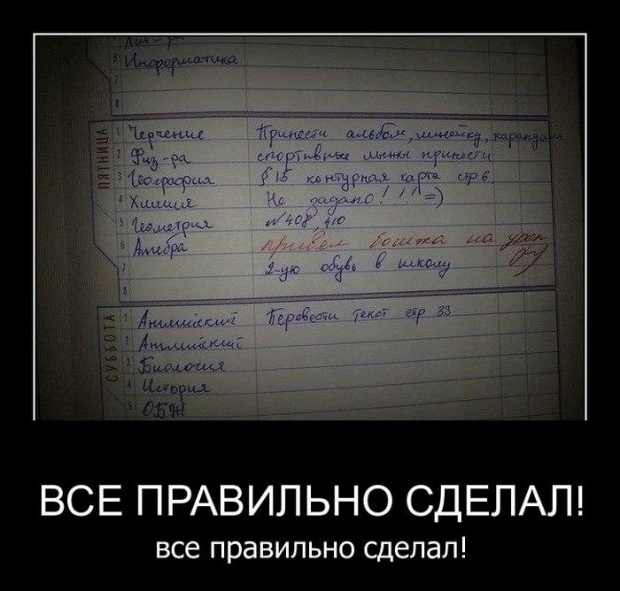 Физ-ра
6 Информатика
7
8
ПЯТНИЦА
1 Черчение Принести альбом, линейку, карандаш
2 Физ-ра спортивные лыжы принести
3 География §15 контурная карта стр 6
4 Химия Не задано!!!! =)
5 Геометрия №408, 410
6 Алгебра привел бошка на урок
7 2-ую обувь в школу
8
СУББОТА
1 Английский Перевести текст стр 33
2 Английский
3 Биология
4 История
5 ОБЖ
ВСЕ ПРАВИЛЬНО СДЕЛАЛ!
все правильно сделал!